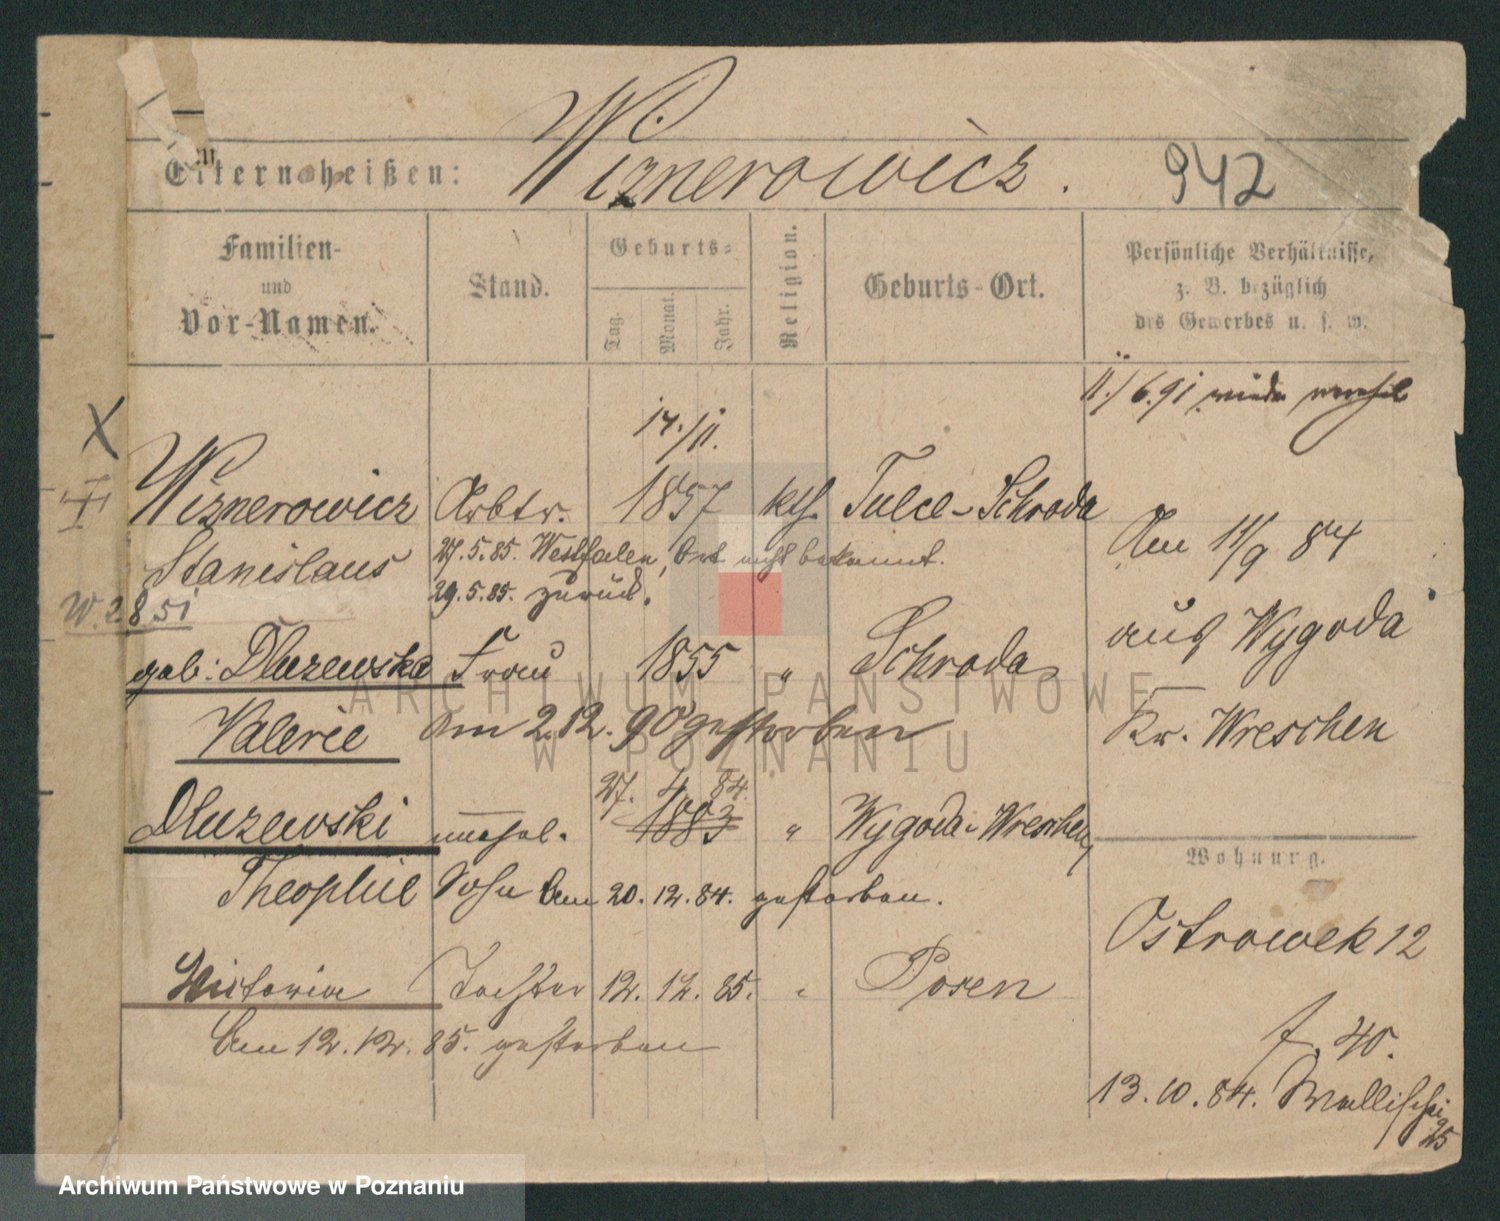 Wiznerowicz.
Elternheißen:
942
Familien-
und
Vor-Namen.
Stand.
Geburts-
Tag.
Monat.
Jahr.
Religion.
Geburts-Ort.
Persönliche Verhältnisse,
z. B. bezüglich
des Gewerbes u. s. w.
11./6.91 wieder
X
14./11.
Wiznerowicz Arbtr. 1857 kth. Tulce-Schroda
Stanislaus
27.5.85. Westfalen, Ort nicht bekannt.
29.5.85. zurück.
W. 2851
geb: Dluzewska Frau 1855 " Schroda
Valerie am 2.12.90 gestorben
27. 4. 84.
Dluzewski unehel. 1883 " Wygoda-Wreschen
Theophil Sohn am 20.12.84. gestorben.
Victoria Tochter 12. 12. 85. " Posen
Am 12.12.85. gestorben
Am 11/9 84
aus Wygoda
Kr. Wreschen
Wohnung.
Ostrowek 12
f. 40.
13.10.84. Wallischei
25
ARCHIWUM PAŃSTWOWE
W POZNANIU
Archiwum Państwowe w Poznaniu